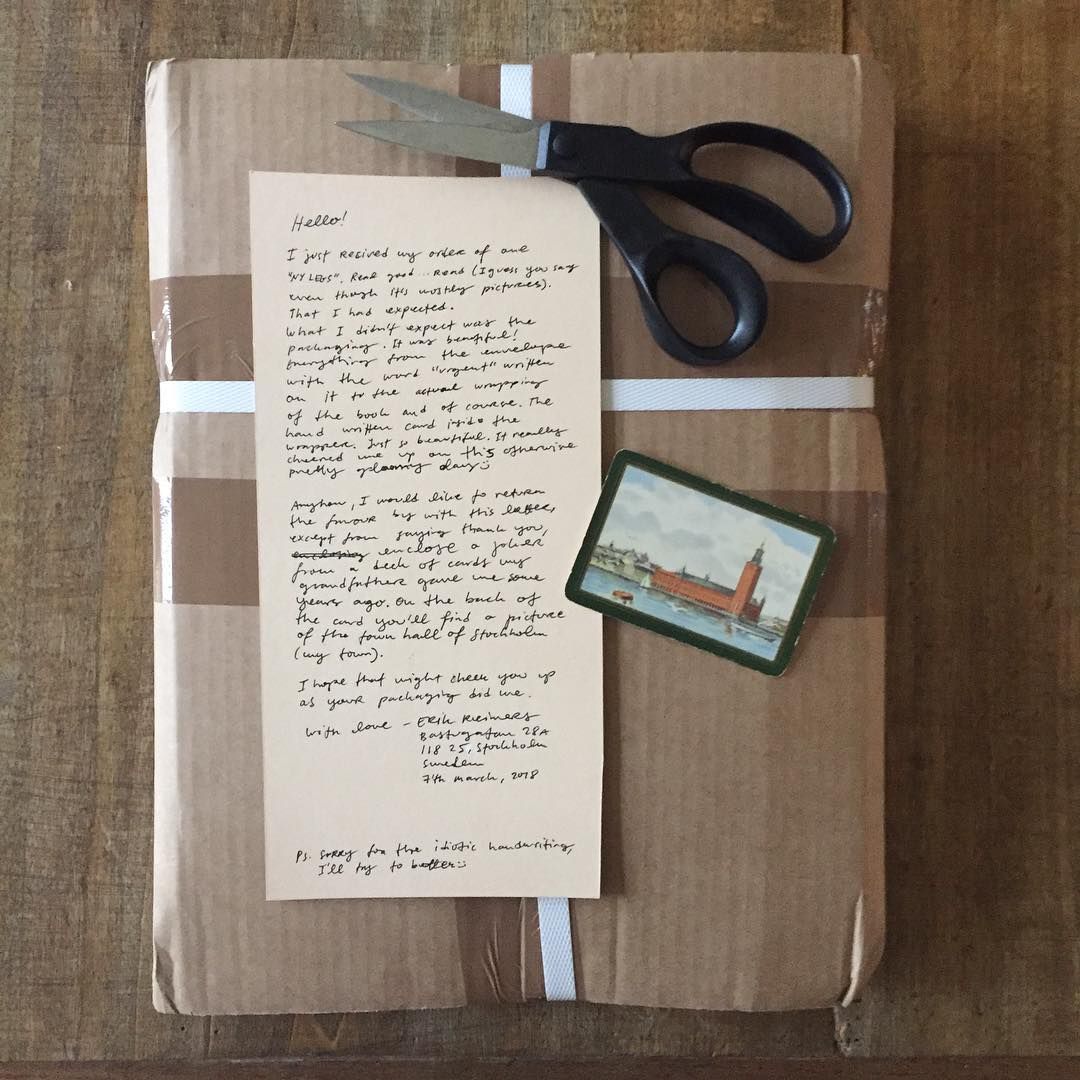 Hello!
I just recived my order of one
"NY LEGS". Real good ... read (I guess you say
even though it's mostly pictures).
That I had expected.
What I didn't expect was the
packaging. It was beautiful!
Everything from the envelope
with the word "urgent" written
on it to the actual wrapping
of the book and of course. The
hand written card inside the
wrapper. Just so beautiful. It really
cheered me up on this otherwise
pretty gloomy day :)
Anyhow, I would like to return
the favour by with this letter,
except from saying thank you,
enclose a joker
from a deck of cards my
grandfather gave me some
years ago. On the back of
the card you'll find a picture
of the town hall of Stockholm
(my town).
I hope that might cheer you up
as your packaging did me.
With love - Erik Reimers
Bastugatan 28A
118 25, Stockholm
Sweden
7th march, 2018
Ps. Sorry for the idiotic handwriting,
I'll try to better :)